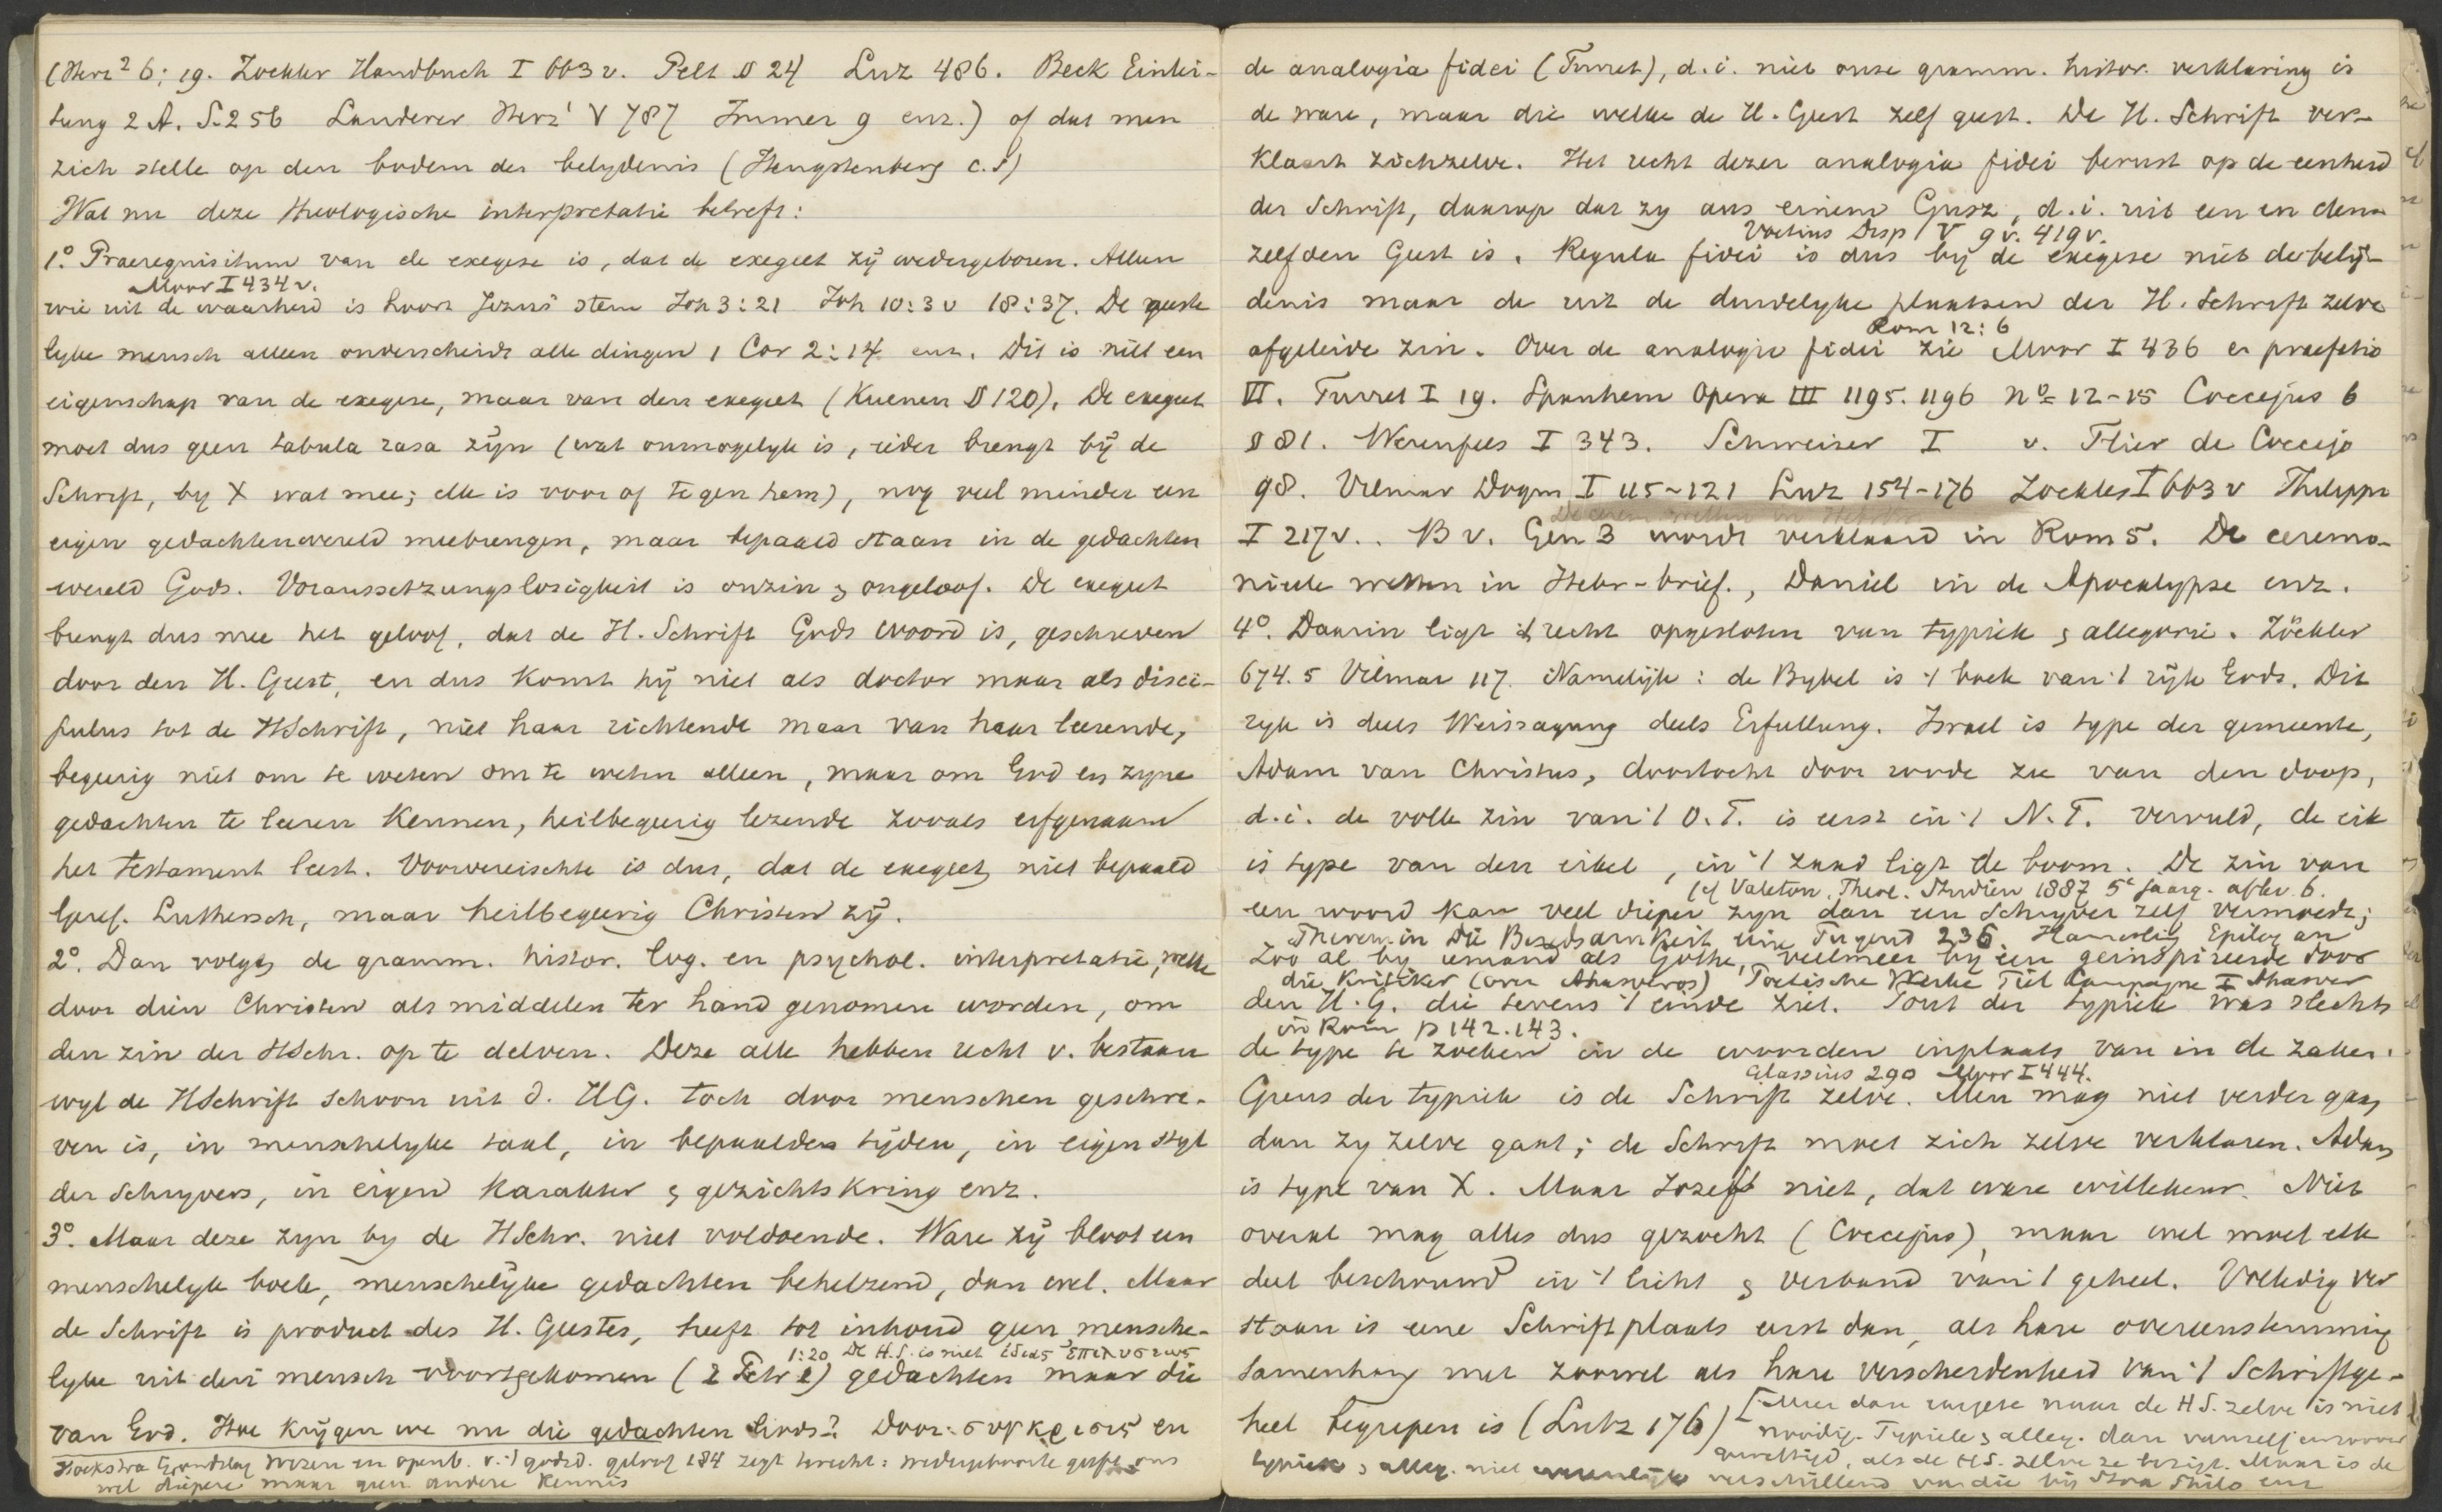 (Herz² 6; 19. Zockler Handbuch I 663 v. Pelt § 24 Luz 486. Beck Einlei-
tung 2 A. S. 256 Landerer Herz¹ V 787 Immer 9 enz.) of dat men
zich stelle op den bodem der belydenis (Hengstenberg c.s)
Wat nu deze theologische interpretatie betreft:
1º. Praerequisitum van de exegese is, dat de exegeet zij wedergeboren. Alleen
Moor I 434 v.
wie uit de waarheid is hoort Jezus' stem Joh 3:21 Joh 10:3 v 18:37. De geeste
lyke mensch alleen onderscheidt alle dingen 1 Cor 2:14 enz. Dit is niet een
eigenschap van de exegese, maar van den exegeet (Kuenen § 120). De exegeet
moet dus geen tabula rasa zijn (wat onmogelyk is, ieder brengt bij de
Schrift, by X wat mee; elk is voor of tegen hem), nog veel minder een
eigen gedachtenwereld meebrengen, maar bepaald staan in de gedachten
wereld Gods. Voraussetzungslosigkeit is onzin & ongeloof. De exegeet
brengt dus mee het geloof, dat de H. Schrift Gods woord is, geschreven
door den H. Geest, en dus komt hij niet als doctor maar als disci-
pulus tot de HSchrift, niet haar richtende maar van haar leerende,
begeerig niet om te weten om te weten alleen, maar om God en zyne
gedachten te leeren kennen, heilbegeerig lezende zooals erfgenaam
het testament leest. Voorvereischte is dus, dat de exegeet niet bepaald
Geref. Luthersch, maar heilbegeerig Christen zij.
2º. Dan volgen de gramm. histor. log. en psychol. interpretatie, welke
door dien Christen als middelen ter hand genomen worden, om
den zin der HSchr. op te delven. Deze alle hebben recht v. bestaan
wyl de HSchrift schoon uit d. HG. toch door menschen geschre-
ven is, in menschelyke taal, in bepaalden tijden, in eigen styl
der Schryvers, in eigen karakter & gezichtskring enz.
3º. Maar deze zyn by de HSchr. niet voldoende. Ware zij bloot een
menschelyk boek, menschelijke gedachten behelzend, dan wel. Maar
de Schrift is product des H. Geestes, heeft tot inhoud geen mensche-
1:20 De H.S. is niet ἰδιας ἐπιλυσεως
lyke uit den mensch voortgekomen (2 Petr 1) gedachten maar die
van God. Hoe krijgen we nu die gedachten Gods? Door: συγκρισις en
Hoekstra Grondslag wezen en openb. v. 't godsd. geloof 184 zegt terecht: wedergeboorte geeft ons
wel diepere maar geen andere kennis
de analogia fidei (Turret), d.i. niet onze gramm. histor. verklaring is
de ware, maar die welke de H. Geest zelf geeft. De H. Schrift ver-
klaart zichzelve. Het recht dezer analogia fidei berust op de eenheid
der Schrift, daarop dat zy aus einem Gusz, d.i. uit een en den-
Voetius Disp V 9 v. 419 v.
zelfden Geest is. Regula fidei is dus bij de exegese niet de belij-
denis maar de uit de duidelyke plaatsen der H. Schrift zelve
Rom 12:6
afgeleide zin. Over de analogie fidei zie Moor I 436 en praefatio
VI. Turret I 19. Spanhem Opera III 1195. 1196 nº 12-15 Coccejus 6
§ 81. Werenfels I 343. Schweizer I v. Flier de Coccejo
98. Vilmar Dogm I 115-121 Luz 154-176 Zockler I 663 v Philippi
I 217 v.. Bv. Gen 3 wordt verklaard in Rom 5. De ceremo-
nieele wetten in Hebr-brief., Daniel in de Apocalypse enz.
4º. Daarin ligt 't recht opgesloten van typiek & allegorie. Zöckler
674.5 Vilmar 117. Namelijk: de Bybel is 't boek van 't rijk Gods. Dit
ryk is deels Weissagung deels Erfullung. Israel is type der gemeente,
Adam van Christus, doortocht door roode zee van den doop,
d.i. de volle zin van 't O.T. is eerst in 't N.T. vervuld, de eik
is type van den eikel, in 't zaad ligt de boom. De zin van
cf Valeton, Theol. Studien 1887 5e jaarg. aflev. 6.
een woord kan veel dieper zyn dan een Schryver zelf vermoedt;
Theremin Die Beredsamkeit eine Tugend 236. Hamerling Epilog an
Zoo al by iemand als Göthe, veelmeer by een geinspireerde door
die Kritiker (over Ahasveros) Poetische Werke I Ahasver
den H.G. die tevens 't einde ziet. Fout der typiek was slechts
in Rom p 142.143.
de type te zoeken in de woorden inplaats van in de zaken.
Glassius 290 Moor I 444.
Grens der typiek is de Schrift zelve. Men mag niet verder gaan
dan zy zelve gaat; de Schrift moet zich zelve verklaren. Adam
is type van X. Maar Jozef niet, dat ware willekeur. Niet
overal mag alles dus gezocht (Coccejus), maar wel moet elk
deel beschouwd in 't licht & verband van 't geheel. Volledig ver
staan is eene Schriftplaats eerst dan, als hare overeenstemming
samenhang met zoowel als hare verscheidenheid van 't Schriftge-
heel begrepen is (Lutz 176) [Meer dan exegese naar de HS. zelve is niet
noodig. Typiek & alleg. dan vanzelf
gewettigd, als de HS. zelve ze bezigt. Maar is de
typiek & alleg. niet verschillend van die bij Stoa Philo enz